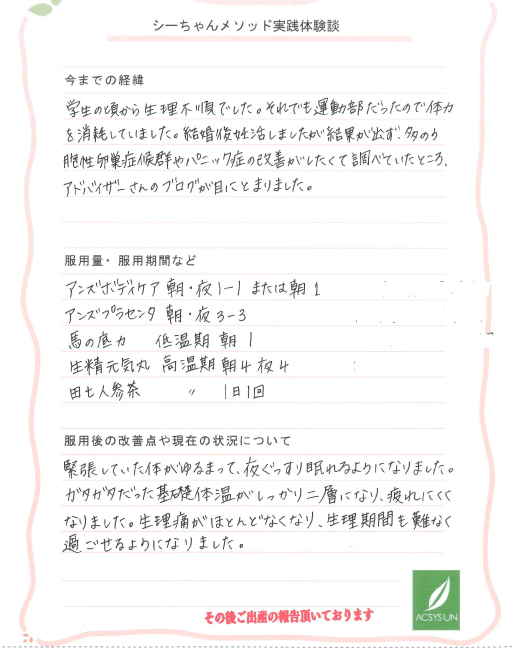 シーちゃんメソッド実践体験談
今までの経緯
学生の頃から生理不順でした。それでも運動部だったので体力
を消耗していました。結婚後妊活しましたが結果が出ず、多のう
胞性卵巣症候群やパニック症の改善がしたくて調べていたところ、
アドバイザーさんのブログが目にとまりました。
服用量・服用期間など
アンズボディケア 朝・夜1-1 または朝 1
アンズプラセンタ 朝・夜 3-3
馬の底力 低温期 朝 1
生精元気丸 高温期 朝4 夜4
田七人参茶 〃 1日1回
服用後の改善点や現在の状況について
緊張していた体がゆるまって、夜ぐっすり眠れるようになりました。
ガタガタだった基礎体温がしっかり二層になり、疲れにくく
なりました。生理痛がほとんどなくなり、生理期間も難なく
過ごせるようになりました。
その後ご出産の報告頂いております
ACSYSUN